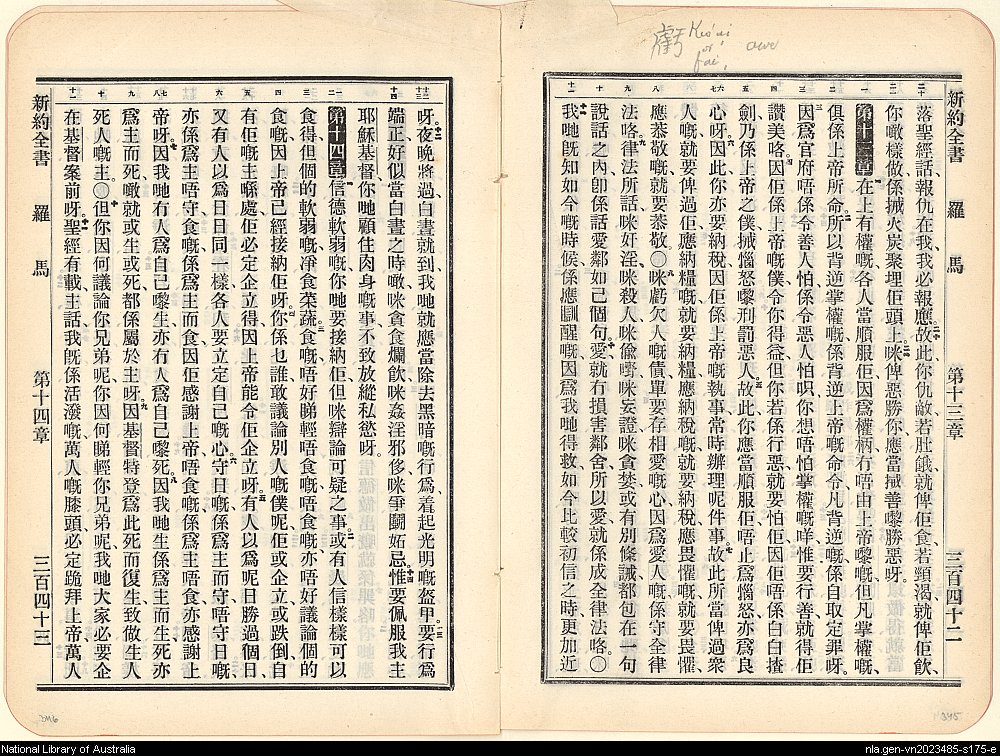 虧 Kw'ai
or
fai,
awe
新約全書 羅馬 第十三章 三百四十二
落聖經話報仇在我我必報應故此你仇敵若肚餓就俾佢食若頸渴就俾佢飲
你噉樣做係搣火炭聚埋佢頭上咪俾惡勝你應當搣善嚟勝惡呀
第十三章 在上有權嘅各人當順服佢因爲權柄冇唔由上帝嚟嘅但凡掌權嘅
俱係上帝所命所以背逆掌權嘅係背逆上帝嘅命令凡背逆嘅係自取定罪呀
因爲官府唔係令善人怕係令惡人怕呮你想唔怕掌權嘅咩惟要行善就得佢
讚美咯因佢係上帝嘅僕令你得益但你若係行惡就要怕佢因佢唔係白白揸
劍乃係上帝之僕搣惱怒嚟刑罰惡人故此你應當順服佢唔止爲惱怒亦爲良
心呀因此你亦要納稅因佢係上帝嘅執事常時辦理呢件事故此所當俾過衆
人嘅就要俾過佢應納糧嘅就要納糧應納稅嘅就要納稅應畏懼嘅就要畏懼
應恭敬嘅就要恭敬〇咪虧欠人嘅債單要存相愛嘅心因爲愛人嘅係守全律
法咯律法所話咪奸淫咪殺人咪偷嘢咪妄證咪貪婪或有別條誡都包在一句
說話之內卽係話愛鄰如己個句愛就冇損害鄰舍所以愛就係成全律法咯〇
我哋旣知如今嘅時候係應瞓醒嘅因爲我哋得救如今比較初信之時更加近
345
呀夜晚將過白晝就到我哋就應當除去黑暗嘅行爲着起光明嘅盔甲要行爲
端正好似當白晝之時噉咪貪食爛飲咪姦淫邪侈咪爭鬬妬忌惟要佩服我主
耶穌基督你哋顧住肉身嘅事不致放縱私慾呀
第十四章 信德軟弱嘅你哋要接納佢但咪辯論可疑之事或有人信樣樣可以
食得但個的軟弱嘅凈食菜蔬食嘅唔好睇輕唔食嘅唔食嘅亦唔好議論個的
食嘅因爲上帝已經接納佢呀你係乜誰敢議論別人嘅僕呢佢或企立或跌倒自
有佢嘅主喺處佢必定企立得因上帝能令佢企立呀有人以爲呢日勝過個日
又有人以爲日日同一樣各人要立定自己嘅心守日嘅係爲主而守唔守日嘅
亦係爲主唔守食嘅係爲主而食因佢感謝上帝唔食嘅係爲主唔食亦感謝上
帝呀因我哋冇人爲自己嚟生亦冇人爲自己嚟死因我哋生係爲主而生死亦
爲主而死噉就或生或死都係屬於主呀因基督特登爲此死而復生致做生人
死人嘅主〇但你因何議論你兄弟呢你因何睇輕你兄弟呢我哋大家必要企
在基督案前呀聖經有載主話我旣係活潑嘅萬人嘅膝頭必定跪拜上帝萬人
新約全書 羅馬 第十四章 三百四十三
346
National Library of Australia
nla.gen-vn2023485-s175-e